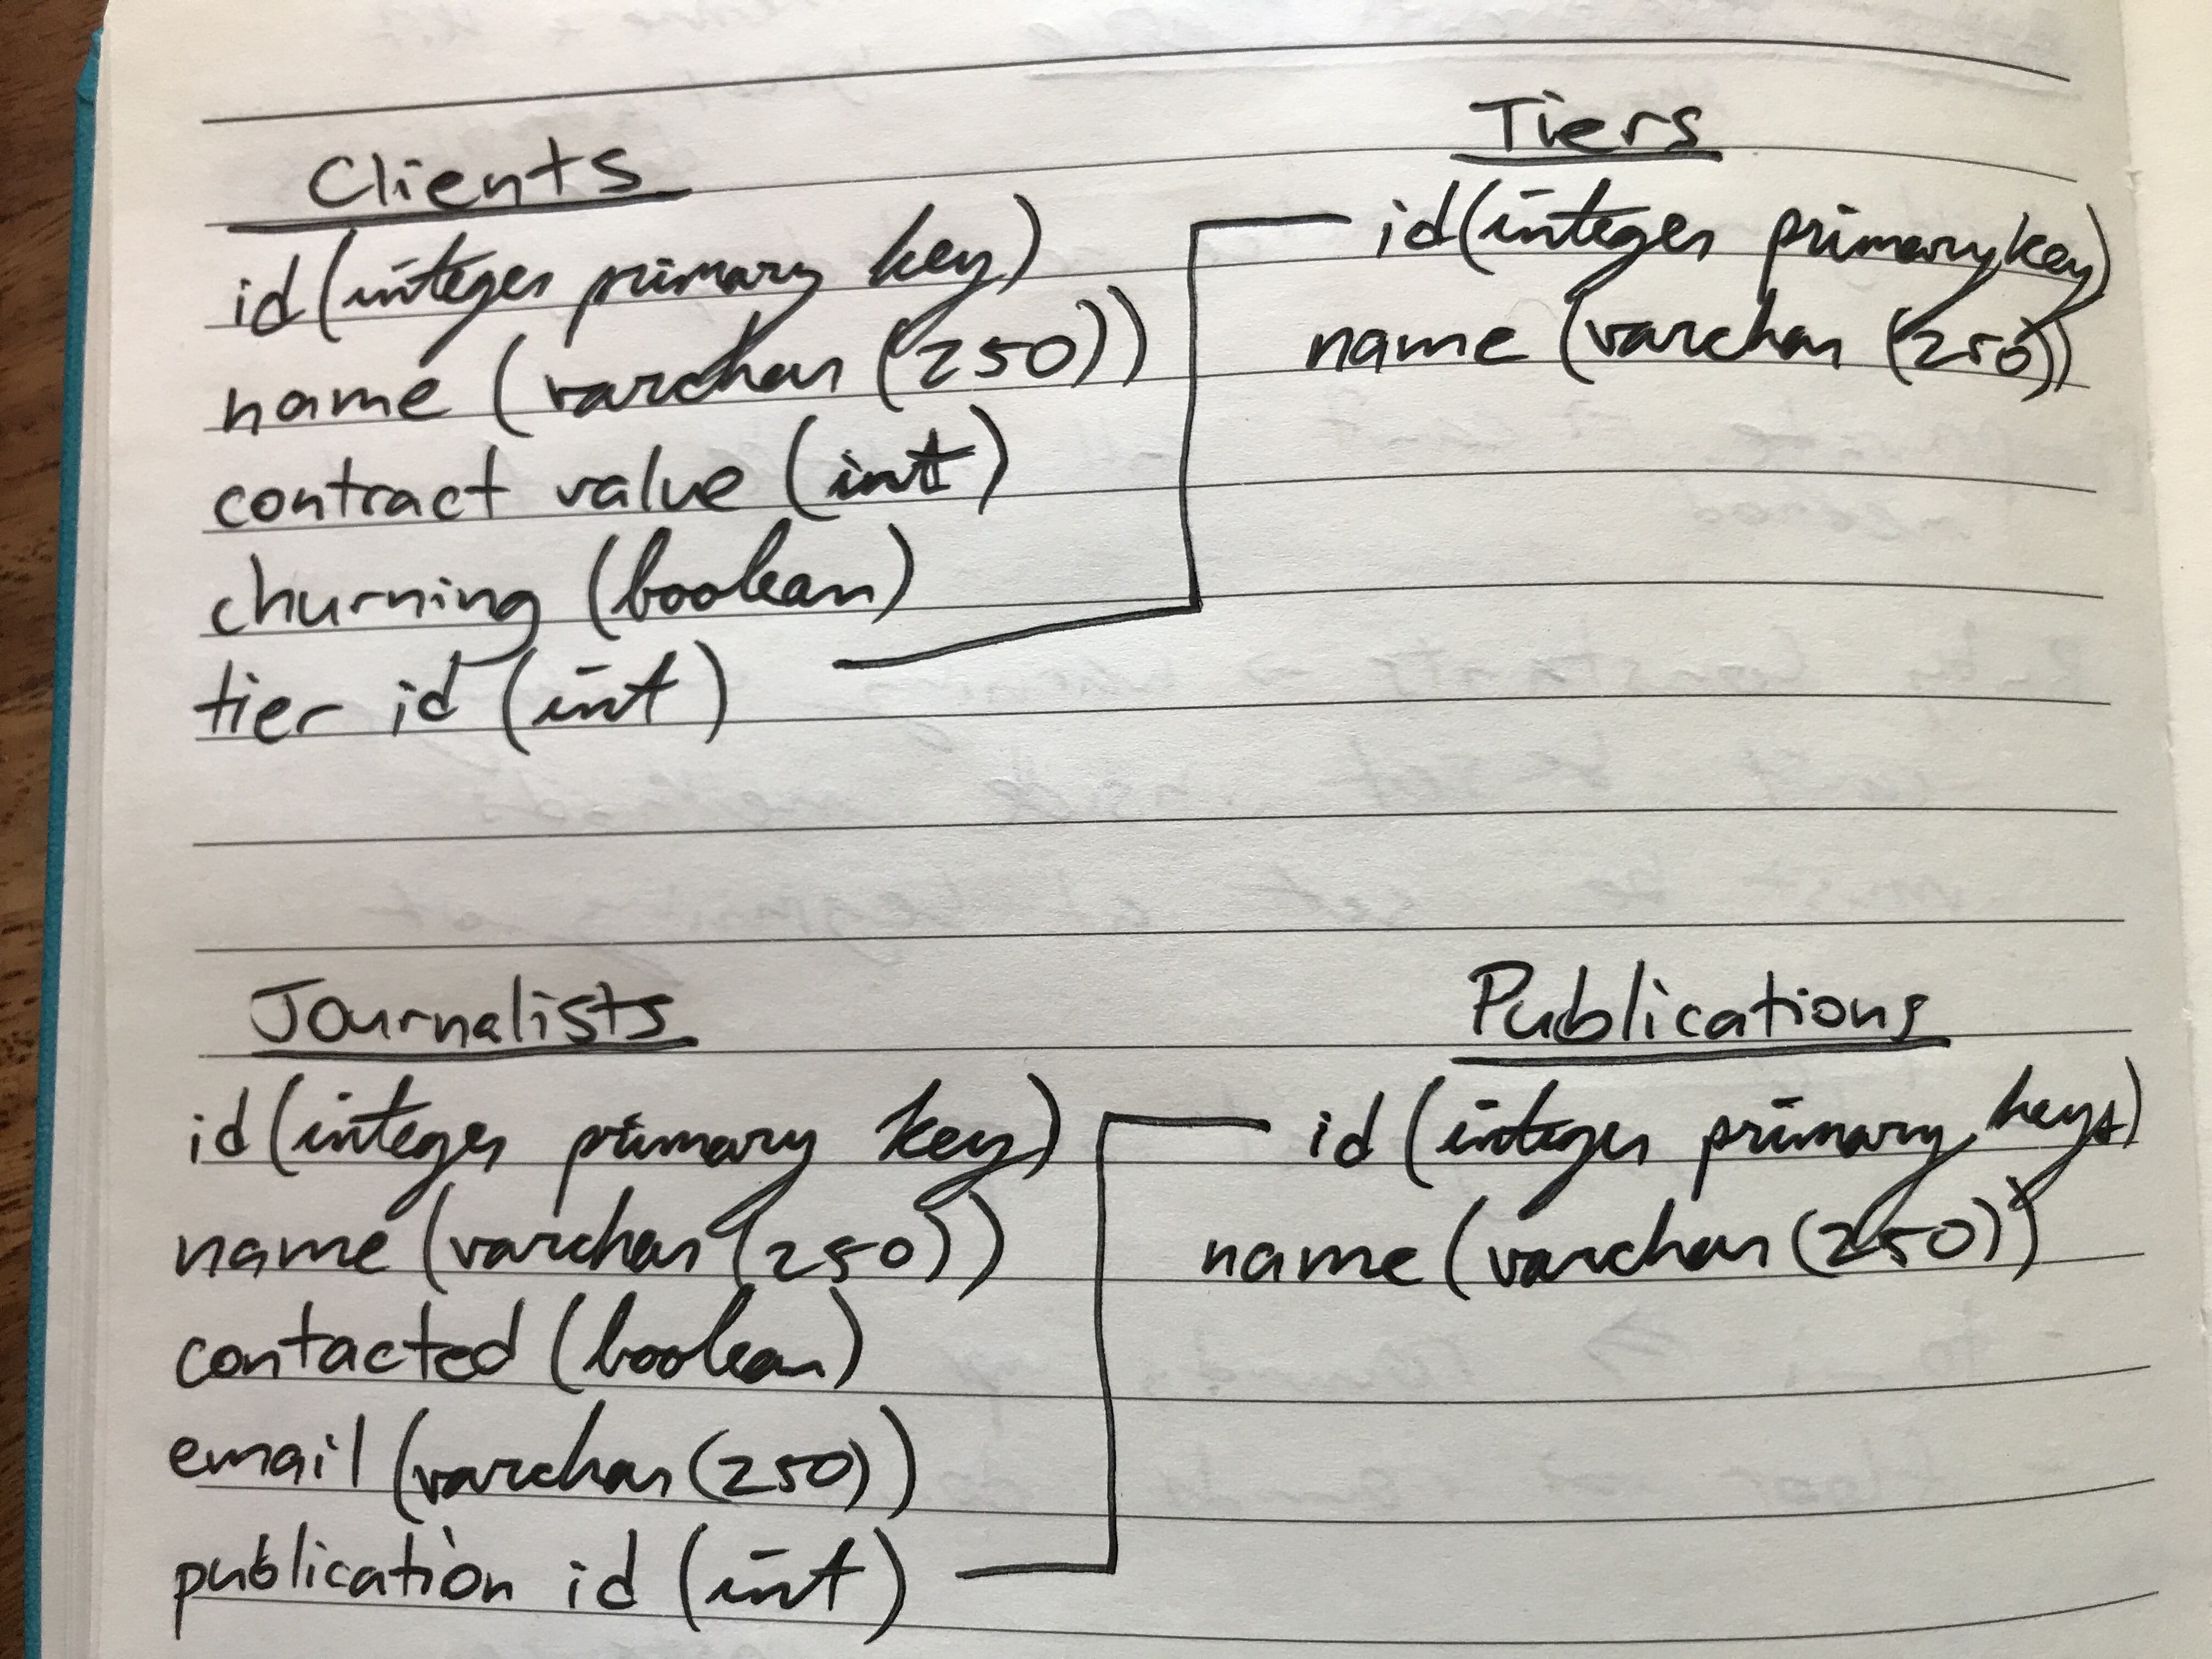 Clients
id (integer primary key)
name (varchar (250))
contract value (int)
churning (boolean)
tier id (int)
Tiers
id (integer primary key)
name (varchar (250))
Journalists
id (integer primary key)
name (varchar (250))
contacted (boolean)
email (varchar (250))
publication id (int)
Publications
id (integer primary key)
name (varchar (250))